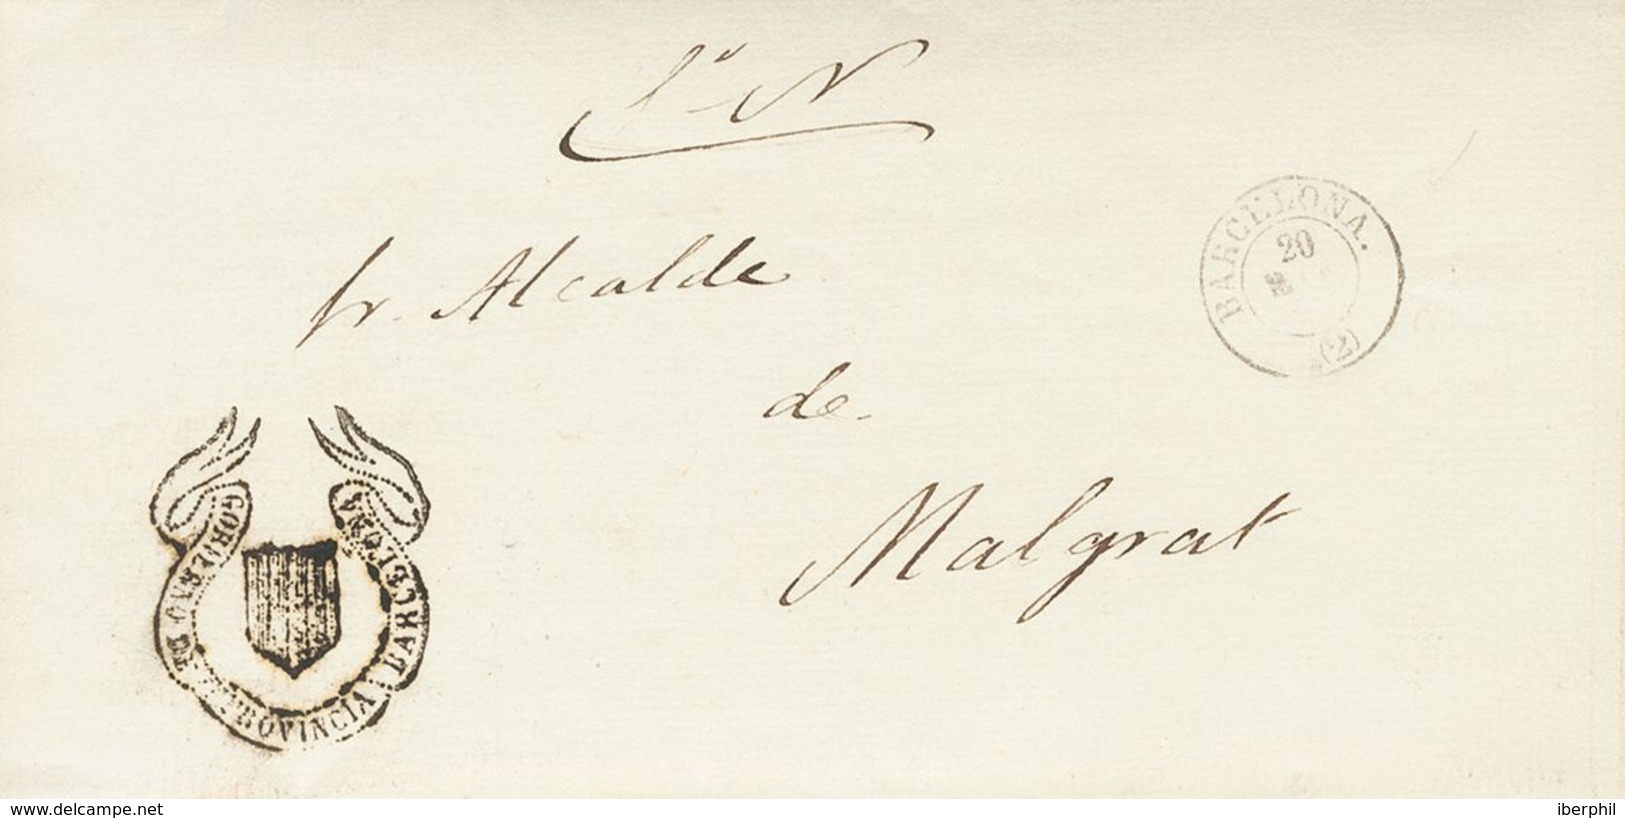 Sr. Alcalde
de
Malgrat
BARCELONA.
20
(2)
GOBIERNO DE PROVINCIA BARCELONA
www.delcampe.net
iberphil